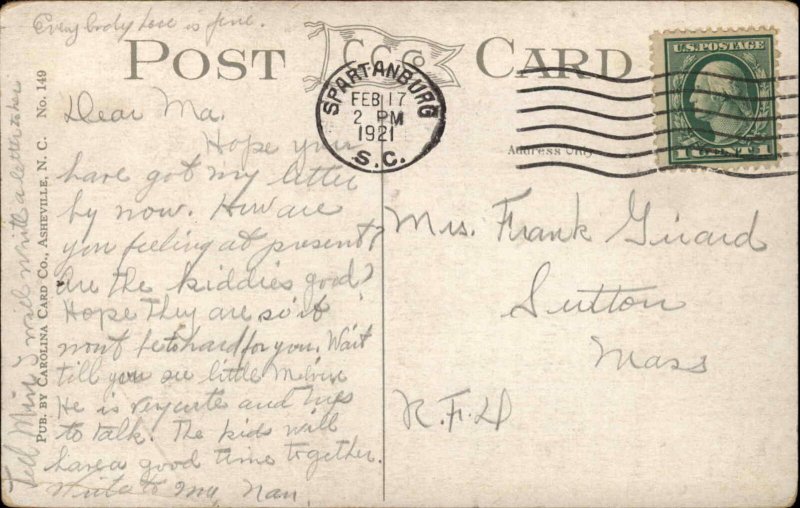 Everybody here is fine.
POST CARD
C.C.Co.
SPARTANBURG
FEB 17
2 PM
1921
S.C.
U.S. POSTAGE
1 CENT 1
Address Only
Dear Ma.
Hope you
have got my letter
by now. How are
you feeling at present?
Are the kiddies good?
Hope they are so it
wont be to hard for you. Wait
till you see little Melvin
He is very cute and trys
to talk. The kids will
have a good time together.
Write to my, Nan,
Tell Mim I will write a letter to her
PUB. BY CAROLINA CARD CO., ASHEVILLE, N. C. No. 149
Mrs. Frank Girard
Sutton
Mass
R.F.D